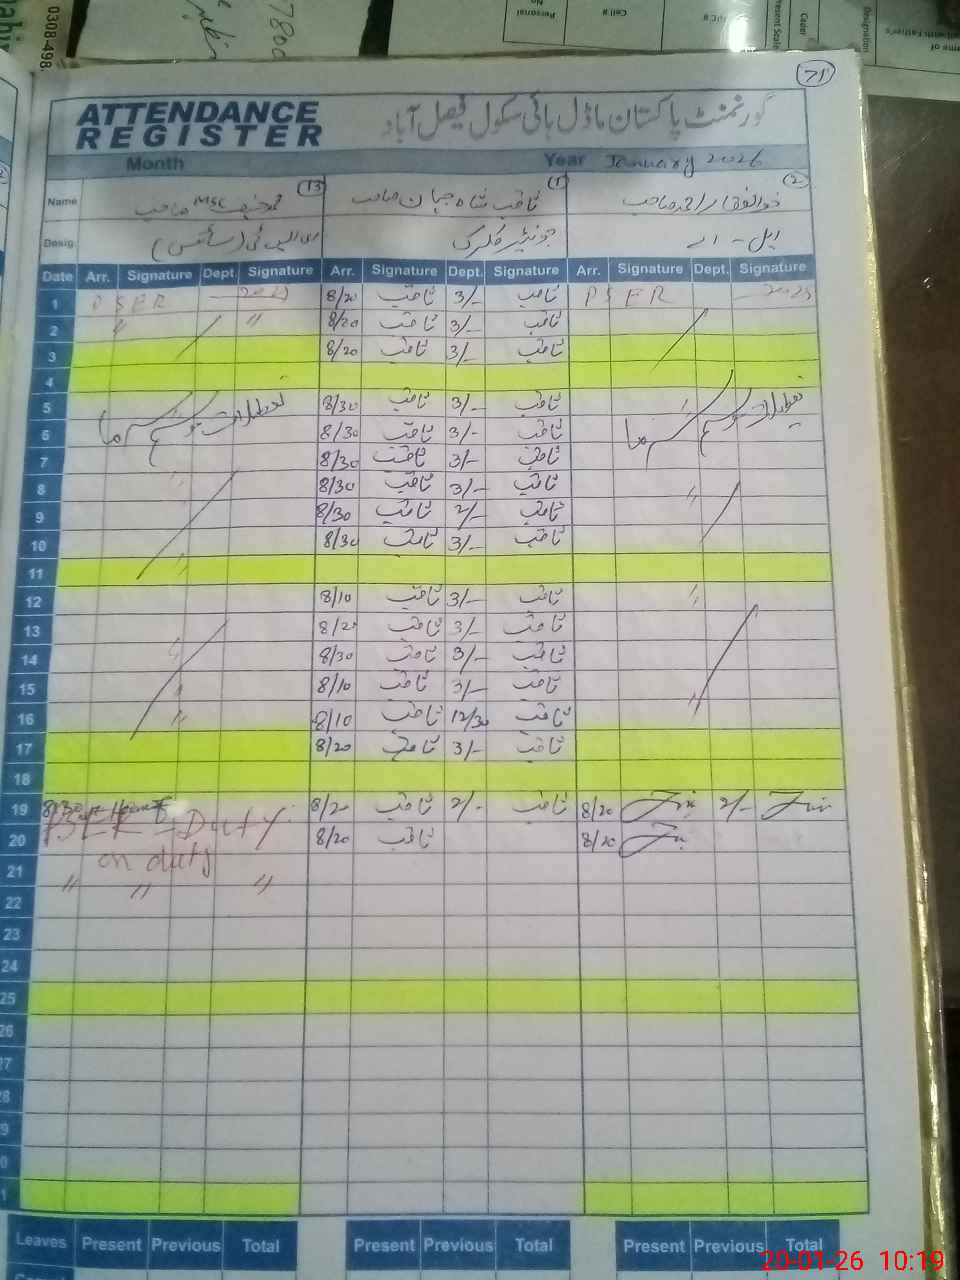 0308-498
7800
Personal No
Cell #
Present Scale
Cader
Designation
71
ATTENDANCE REGISTER
گورنمنٹ پاکستان ماڈل ہائی سکول فیصل آباد
Month
Year January 2026
Name (13) محمد حنیف MSc صاحب (1) ثاقب شاہ جہان صاحب (2) ذوالفقار احمد صاحب
Desig. ای ایس ٹی (سائنس) جونیئر کلرک ایل - اے
Date Arr. Signature Dept. Signature Arr. Signature Dept. Signature Arr. Signature Dept. Signature
1 PSER 2025 8/20 ثاقب 3/- ثاقب PSER 2025
2 〃 〃 8/20 ثاقب 3/- ثاقب
3 8/20 ثاقب 3/- ثاقب
4
5 تعطیلات موسم سرما 8/30 ثاقب 3/- ثاقب تعطیلات موسم سرما
6 8/30 ثاقب 3/- ثاقب
7 8/30 ثاقب 3/- ثاقب
8 〃 8/30 ثاقب 3/- ثاقب 〃
9 8/30 ثاقب 2/- ثاقب
10 8/30 ثاقب 3/- ثاقب
11 〃
12 8/10 ثاقب 3/- ثاقب 〃
13 8/20 ثاقب 3/- ثاقب
14 〃 8/30 ثاقب 3/- ثاقب
15 8/10 ثاقب 3/- ثاقب
16 〃 8/10 ثاقب 12/30 ثاقب 〃
17 8/20 ثاقب 3/- ثاقب
18
19 8/30 Duty 8/20 ثاقب 2/- ثاقب 8/20 2/-
20 on duty 8/20 ثاقب 8/20
21 〃 〃 〃
22
23
24
25
26
27
28
9
0
1
Leaves Present Previous Total Present Previous Total Present Previous Total
20-01-26 10:19